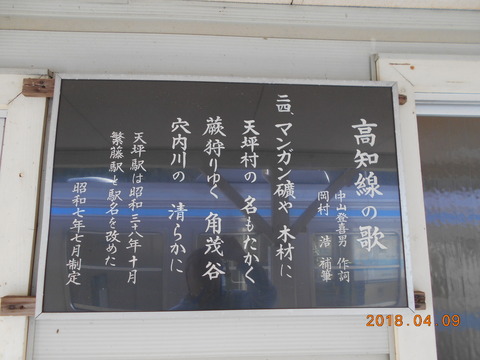 高知線の歌
中山登喜男 作詞
岡村 浩 補筆
二四、マンガン礦や 木材に
天坪村の 名もたかく
蕨狩りゆく 角茂谷
穴内川の 清らかに
天坪駅は昭和三十八年十月
繁藤駅と駅名を改めた
昭和七年七月制定
2018.04.09